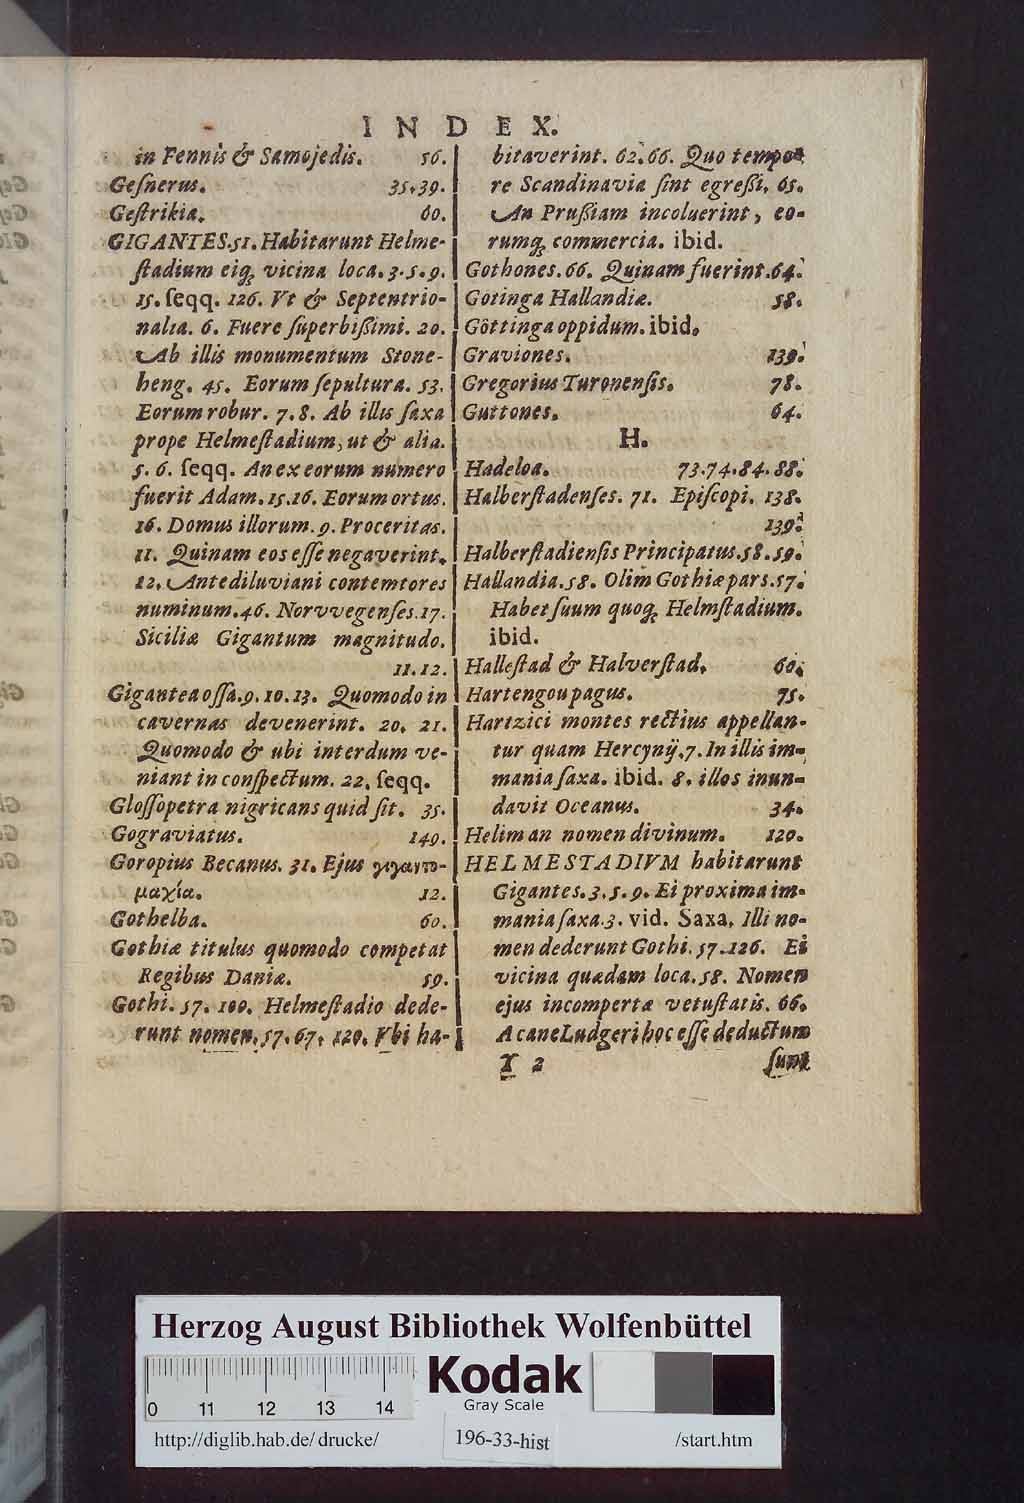 INDEX.
in Fennis & Samojedis. 56.
Geſnerus. 35.39.
Geſtrikia. 60.
GIGANTES.51. Habitarunt Helme-
ſtadium eiq; vicina loca. 3.5.9.
15. ſeqq. 126. Vt & Septentrio-
nalia. 6. Fuere ſuperbißimi. 20.
Ab illis monumentum Stone-
heng. 45. Eorum ſepultura. 53.
Eorum robur. 7.8. Ab illis ſaxa
prope Helmeſtadium, ut & alia.
5.6. ſeqq. An ex eorum numero
fuerit Adam. 15.16. Eorum ortus.
16. Domus illorum. 9. Proceritas.
11. Quinam eos eſſe negaverint.
12. Antediluviani contemtores
numinum. 46. Norvvegenſes. 17.
Siciliæ Gigantum magnitudo.
11.12.
Gigantea oſſa. 9.10.13. Quomodo in
cavernas devenerint. 20. 21.
Quomodo & ubi interdum ve-
niant in conſpectum. 22. ſeqq.
Gloſſopetra nigricans quid ſit. 35.
Gograviatus. 140.
Goropius Becanus. 31. Ejus γιγαντο-
μαχία. 12.
Gothelba. 60.
Gothiæ titulus quomodo competat
Regibus Daniæ. 59.
Gothi. 57. 100. Helmeſtadio dede-
runt nomen. 57.67. 120. Vbi ha-
bitaverint. 62.66. Quo tempo-
re Scandinavia ſint egreßi. 65.
An Prußiam incoluerint, eo-
rumq; commercia. ibid.
Gothones. 66. Quinam fuerint. 64.
Gotinga Hallandiæ. 58.
Göttinga oppidum. ibid.
Graviones. 139.
Gregorius Turonenſis. 78.
Guttones. 64.
H.
Hadeloa. 73.74.84.88.
Halberſtadenſes. 71. Epiſcopi. 138.
139.
Halberſtadienſis Principatus. 58.59.
Hallandia. 58. Olim Gothiæ pars. 57.
Habet ſuum quoq; Helmſtadium.
ibid.
Halleſtad & Halverſtad. 60.
Hartengou pagus. 75.
Hartzici montes rectius appellan-
tur quam Hercynij. 7. In illis im-
mania ſaxa. ibid. 8. illos inun-
davit Oceanus. 34.
Heliman nomen divinum. 120.
HELMESTADIVM habitarunt
Gigantes. 3.5.9. Ei proxima im-
mania ſaxa. 3. vid. Saxa. Illi no-
men dederunt Gothi. 57.126. Ei
vicina quædam loca. 58. Nomen
ejus incompertæ vetuſtatis. 66.
A cane Ludgeri hoc eſſe deductum
Y 2 ſunt
Herzog August Bibliothek Wolfenbüttel
0 11 12 13 14
Kodak
Gray Scale
http://diglib.hab.de/drucke/ 196-33-hist /start.htm